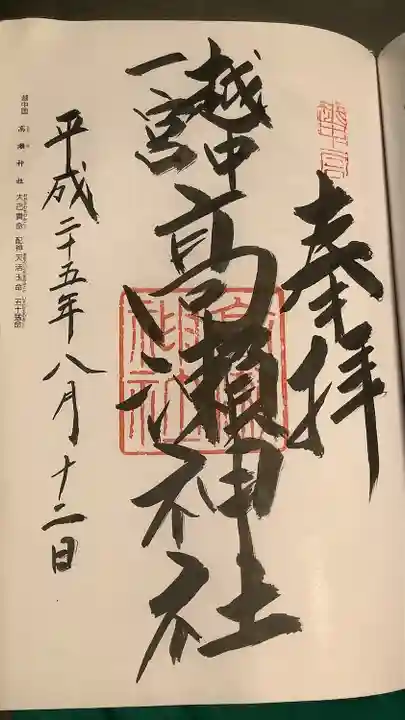 奉拝
越中
一宮
高瀬神社
平成二十五年八月十二日
越中国 高瀬神社 大己貴命 配神 天活玉命 五十猛命
高瀬神社